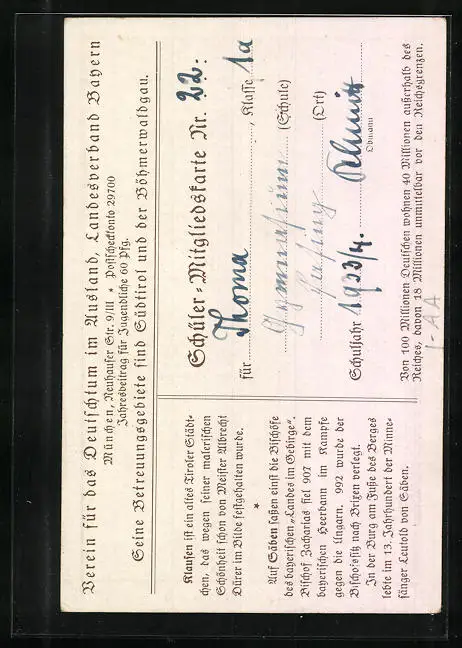 Verein für das Deutschtum im Ausland, Landesverband Bayern
München, Neuhauser Str. 9/III * Postscheckkonto 29700
Jahresbeitrag für Jugendliche 60 Pfg.
Seine Betreuungsgebiete sind Südtirol und der Böhmerwaldgau.
Klausen ist ein altes Tiroler Städt-
chen, das wegen seiner malerischen
Schönheit schon von Meister Albrecht
Dürer im Bilde festgehalten wurde.
*
Auf Säben saßen einst die Bischöfe
des bayerischen „Landes im Gebirge“.
Bischof Zacharias fiel 907 mit dem
bayerischen Heerbann im Kampfe
gegen die Ungarn. 992 wurde der
Bischofssitz nach Brixen verlegt.
In der Burg am Fuße des Berges
lebte im 13. Jahrhundert der Minne-
sänger Leutold von Säben.
Schüler-Mitgliedskarte Nr. 22:
für Thoma, Klasse 1a
Gymnasium (Schule)
(Ort)
Schuljahr 1933/4.
Obmann
Von 100 Millionen Deutschen wohnen 40 Millionen außerhalb des
Reiches, davon 18 Millionen unmittelbar vor den Reichsgrenzen.
1-AA